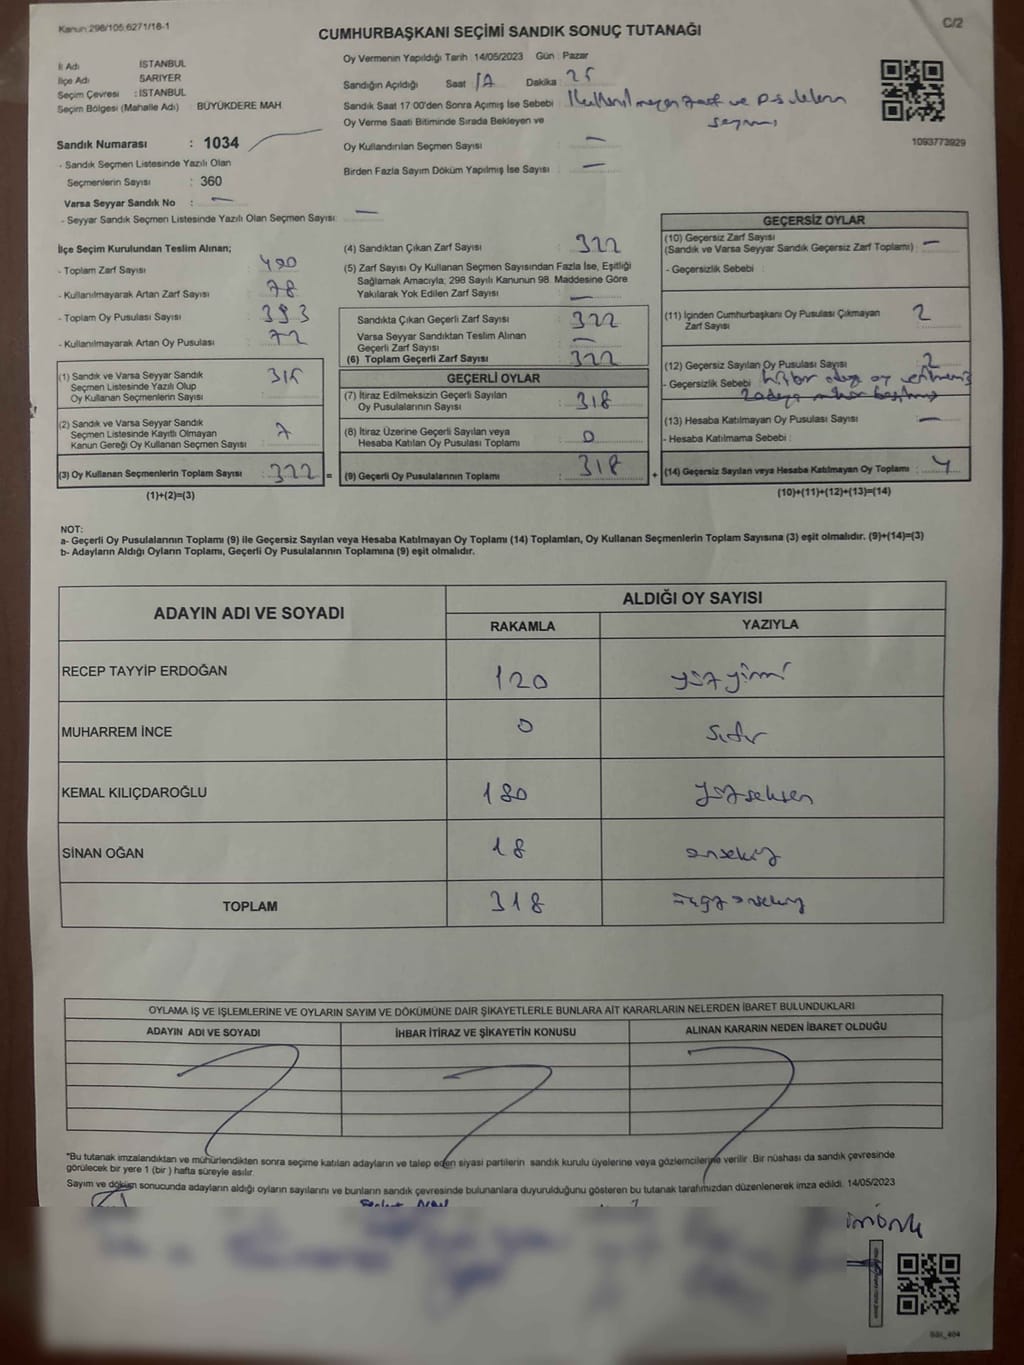 Kanun:298/105,6271/18-1
C/2
CUMHURBAŞKANI SEÇİMİ SANDIK SONUÇ TUTANAĞI
İl Adı İSTANBUL
İlçe Adı SARIYER
Seçim Çevresi : İSTANBUL
Seçim Bölgesi (Mahalle Adı) : BÜYÜKDERE MAH
Sandık Numarası : 1034
- Sandık Seçmen Listesinde Yazılı Olan
Seçmenlerin Sayısı : 360
Varsa Seyyar Sandık No : —
- Seyyar Sandık Seçmen Listesinde Yazılı Olan Seçmen Sayısı: —
Oy Vermenin Yapıldığı Tarih : 14/05/2023 Gün : Pazar
Sandığın Açıldığı Saat : 17 Dakika : 25
Sandık Saat 17:00'den Sonra Açımış İse Sebebi : Kullanılmayan zarf ve pusulaların
sayımı
Oy Verme Saati Bitiminde Sırada Bekleyen ve
Oy Kullandırılan Seçmen Sayısı : —
Birden Fazla Sayım Döküm Yapılmış İse Sayısı : —
1093773929
İlçe Seçim Kurulundan Teslim Alınan;
- Toplam Zarf Sayısı : 400
- Kullanılmayarak Artan Zarf Sayısı : 78
- Toplam Oy Pusulası Sayısı : 393
- Kullanılmayarak Artan Oy Pusulası : 72
(1) Sandık ve Varsa Seyyar Sandık
Seçmen Listesinde Yazılı Olup
Oy Kullanan Seçmenlerin Sayısı : 315
(2) Sandık ve Varsa Seyyar Sandık
Seçmen Listesinde Kayıtlı Olmayan
Kanun Gereği Oy Kullanan Seçmen Sayısı : 7
(3) Oy Kullanan Seçmenlerin Toplam Sayısı : 322 =
(1)+(2)=(3)
(4) Sandıktan Çıkan Zarf Sayısı : 322
(5) Zarf Sayısı Oy Kullanan Seçmen Sayısından Fazla İse, Eşitliği
Sağlamak Amacıyla; 298 Sayılı Kanunun 98. Maddesine Göre
Yakılarak Yok Edilen Zarf Sayısı : —
Sandıkta Çıkan Geçerli Zarf Sayısı : 322
Varsa Seyyar Sandıktan Teslim Alınan
Geçerli Zarf Sayısı : —
(6) Toplam Geçerli Zarf Sayısı : 322
GEÇERLİ OYLAR
(7) İtiraz Edilmeksizin Geçerli Sayılan
Oy Pusulalarının Sayısı : 318
(8) İtiraz Üzerine Geçerli Sayılan veya
Hesaba Katılan Oy Pusulası Toplamı : 0
(9) Geçerli Oy Pusulalarının Toplamı : 318 +
GEÇERSİZ OYLAR
(10) Geçersiz Zarf Sayısı
(Sandık ve Varsa Seyyar Sandık Geçersiz Zarf Toplamı) : —
- Geçersizlik Sebebi :
(11) İçinden Cumhurbaşkanı Oy Pusulası Çıkmayan
Zarf Sayısı : 2
(12) Geçersiz Sayılan Oy Pusulası Sayısı : 2
- Geçersizlik Sebebi : hiçbir aday oy verilmemiş
2 adaya mühür basılmış
(13) Hesaba Katılmayan Oy Pusulası Sayısı : —
- Hesaba Katılmama Sebebi :
(14) Geçersiz Sayılan veya Hesaba Katılmayan Oy Toplamı : 4
(10)+(11)+(12)+(13)=(14)
NOT:
a- Geçerli Oy Pusulalarının Toplamı (9) ile Geçersiz Sayılan veya Hesaba Katılmayan Oy Toplamı (14) Toplamları, Oy Kullanan Seçmenlerin Toplam Sayısına (3) eşit olmalıdır. (9)+(14)=(3)
b- Adayların Aldığı Oyların Toplamı, Geçerli Oy Pusulalarının Toplamına (9) eşit olmalıdır.
ADAYIN ADI VE SOYADI ALDIĞI OY SAYISI
RAKAMLA YAZIYLA
RECEP TAYYİP ERDOĞAN 120 yüz yirmi
MUHARREM İNCE 0 sıfır
KEMAL KILIÇDAROĞLU 180 yüzseksen
SİNAN OĞAN 18 onsekiz
TOPLAM 318 üçyüzonsekiz
OYLAMA İŞ VE İŞLEMLERİNE VE OYLARIN SAYIM VE DÖKÜMÜNE DAİR ŞİKAYETLERLE BUNLARA AİT KARARLARIN NELERDEN İBARET BULUNDUKLARI
ADAYIN ADI VE SOYADI İHBAR İTİRAZ VE ŞİKAYETİN KONUSU ALINAN KARARIN NEDEN İBARET OLDUĞU
"Bu tutanak imzalandıktan ve mühürlendikten sonra seçime katılan adayların ve talep eden siyasi partilerin sandık kurulu üyelerine veya gözlemcilerine verilir. Bir nüshası da sandık çevresinde
görülecek bir yere 1 (bir) hafta süreyle asılır.
Sayım ve döküm sonucunda adayların aldığı oyların sayılarını ve bunların sandık çevresinde bulunanlara duyurulduğunu gösteren bu tutanak tarafımızdan düzenlenerek imza edildi. 14/05/2023